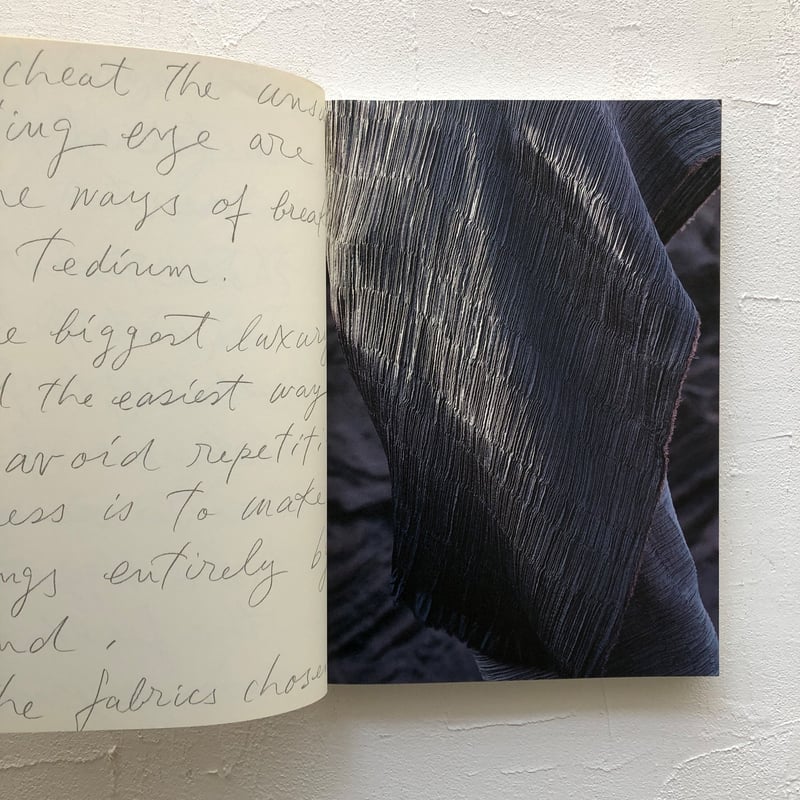 cheat the uns
'ing eye are
ne ways of break
Tedium.
e biggest luxury
d the easiest way
avoid repetiti
ess is to make
ngs entirely by
nd,
he fabrics chosen